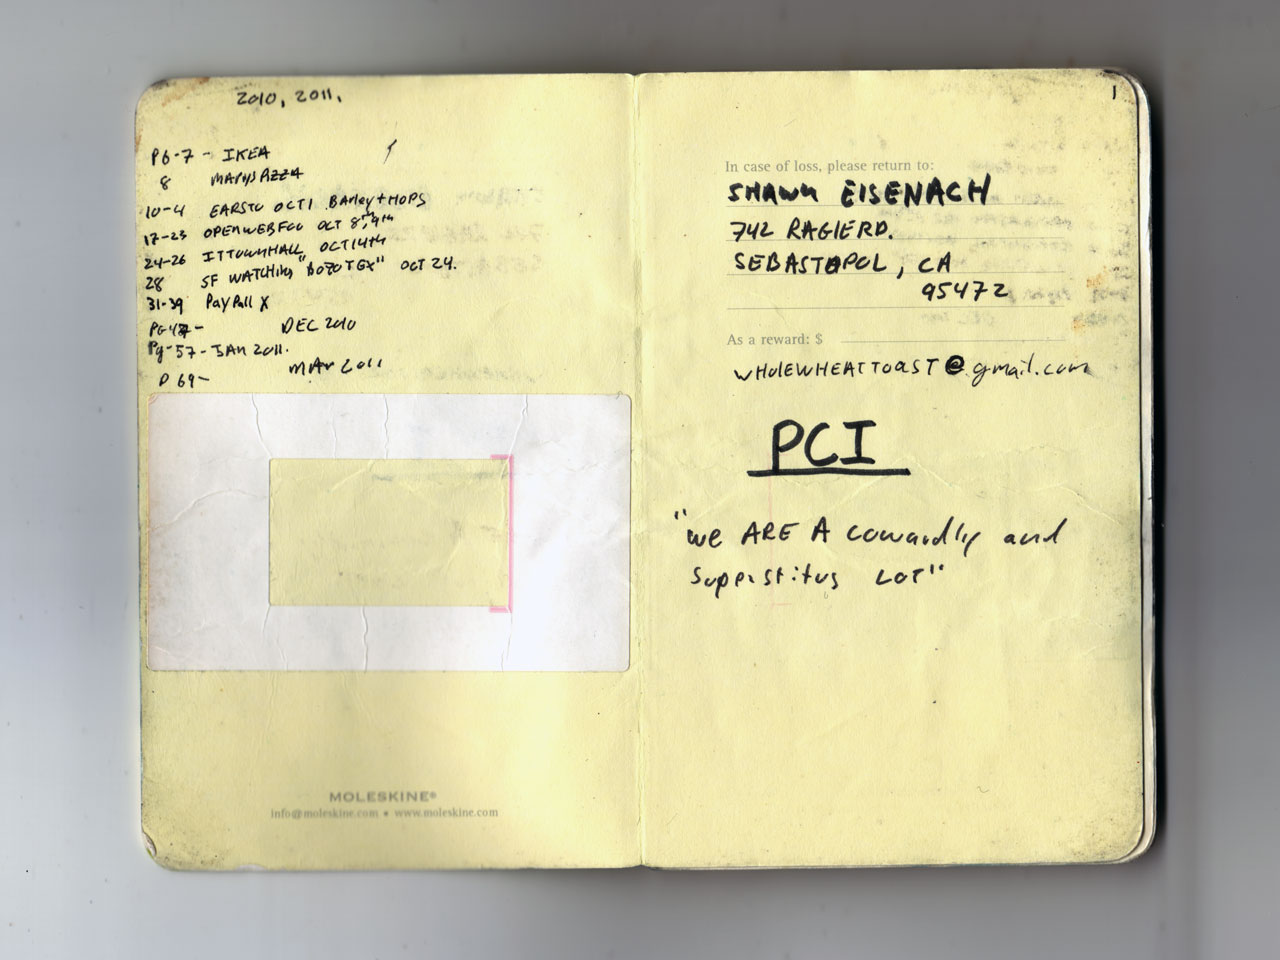 2010, 2011.
P6-7 - IKEA
8 MARYS PIZZA
10-4 EARSTO OCT1 Barley+HOPS
17-23 OPENWEBFOO OCT 8th,9th
24-26 ITTOWNHALL OCT14th
28 SF WATCHING "BOZO TEX" OCT 24.
31-39 PayPall X
PG47- DEC 2010
Pg-57-JAN 2011.
P 69- MAr 2011
MOLESKINE®
info@moleskine.com • www.moleskine.com
1
In case of loss, please return to:
SHAWN EISENACH
742 RAGLE RD.
SEBASTOPOL, CA
95472
As a reward: $
wHolEWHEATTOaST@gmail.com
PCI
"we ARE A cowardly and
supperstitus LOT"